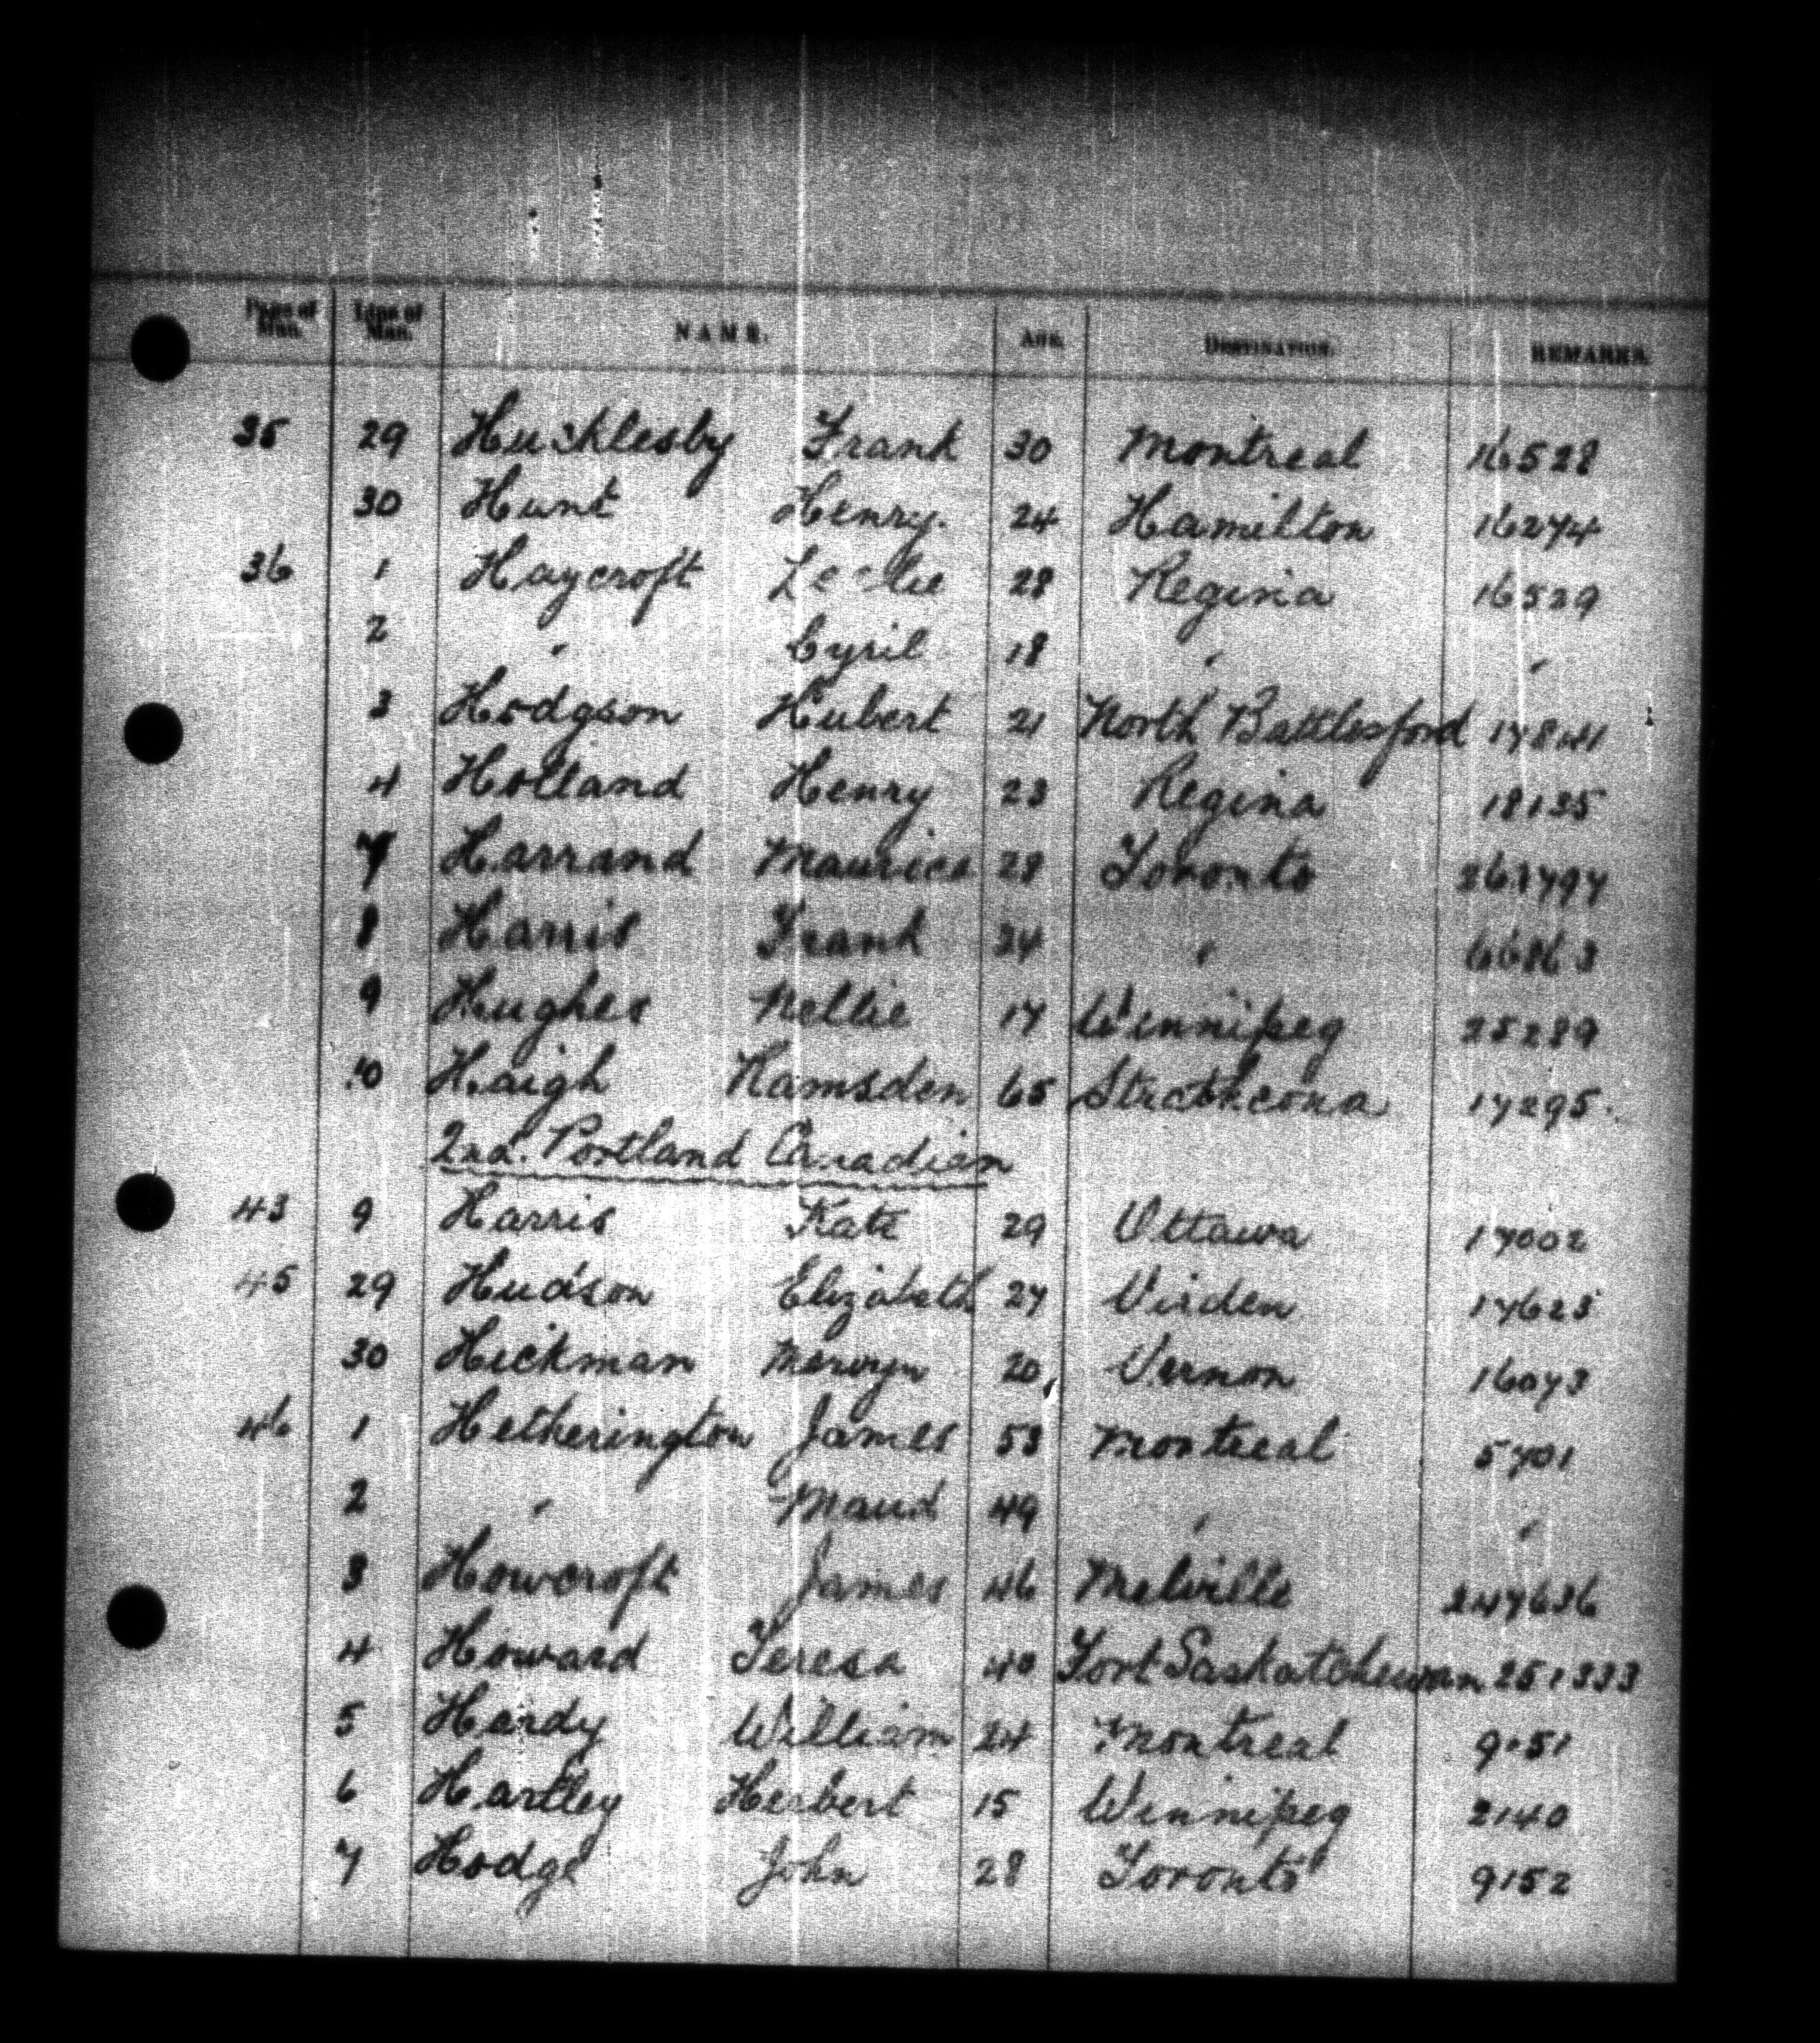 Page of Man. Line of Man. NAME. AGE. DESTINATION. REMARKS.
35 29 Hucklesby Frank 30 Montreal 16528
30 Hunt Henry. 24 Hamilton 16274
36 1 Haycroft Leslie 28 Regina 16529
2 " Cyril 18 " "
3 Hodgson Hubert 21 North Battlesford 17841
4 Holland Henry 23 Regina 18135
7 Harrand Maurice 28 Toronto
8 Harris Frank 34 " 66863
9 Hughes Nellie 17 Winnipeg 25289
10 Haigh Hamsden 65 Strathcona 17295.
2nd. Portland Canadian
43 9 Harris Kate 29 Ottawa 17002
45 29 Hudson Elizabeth 27 Virden 17623
30 Hickman Merwyn 20 Vernon 16073
46 1 Hetherington James 53 Montreal 5701
2 " Maud 49 " "
3 Howcroft James 46 Melville 247636
4 Howard Teresa 40 Fort Saskatchewan 251333
5 Hardy William 24 Montreal 9151
6 Hartley Herbert 15 Winnipeg 2140
7 Hodge John 28 Toronto 9152